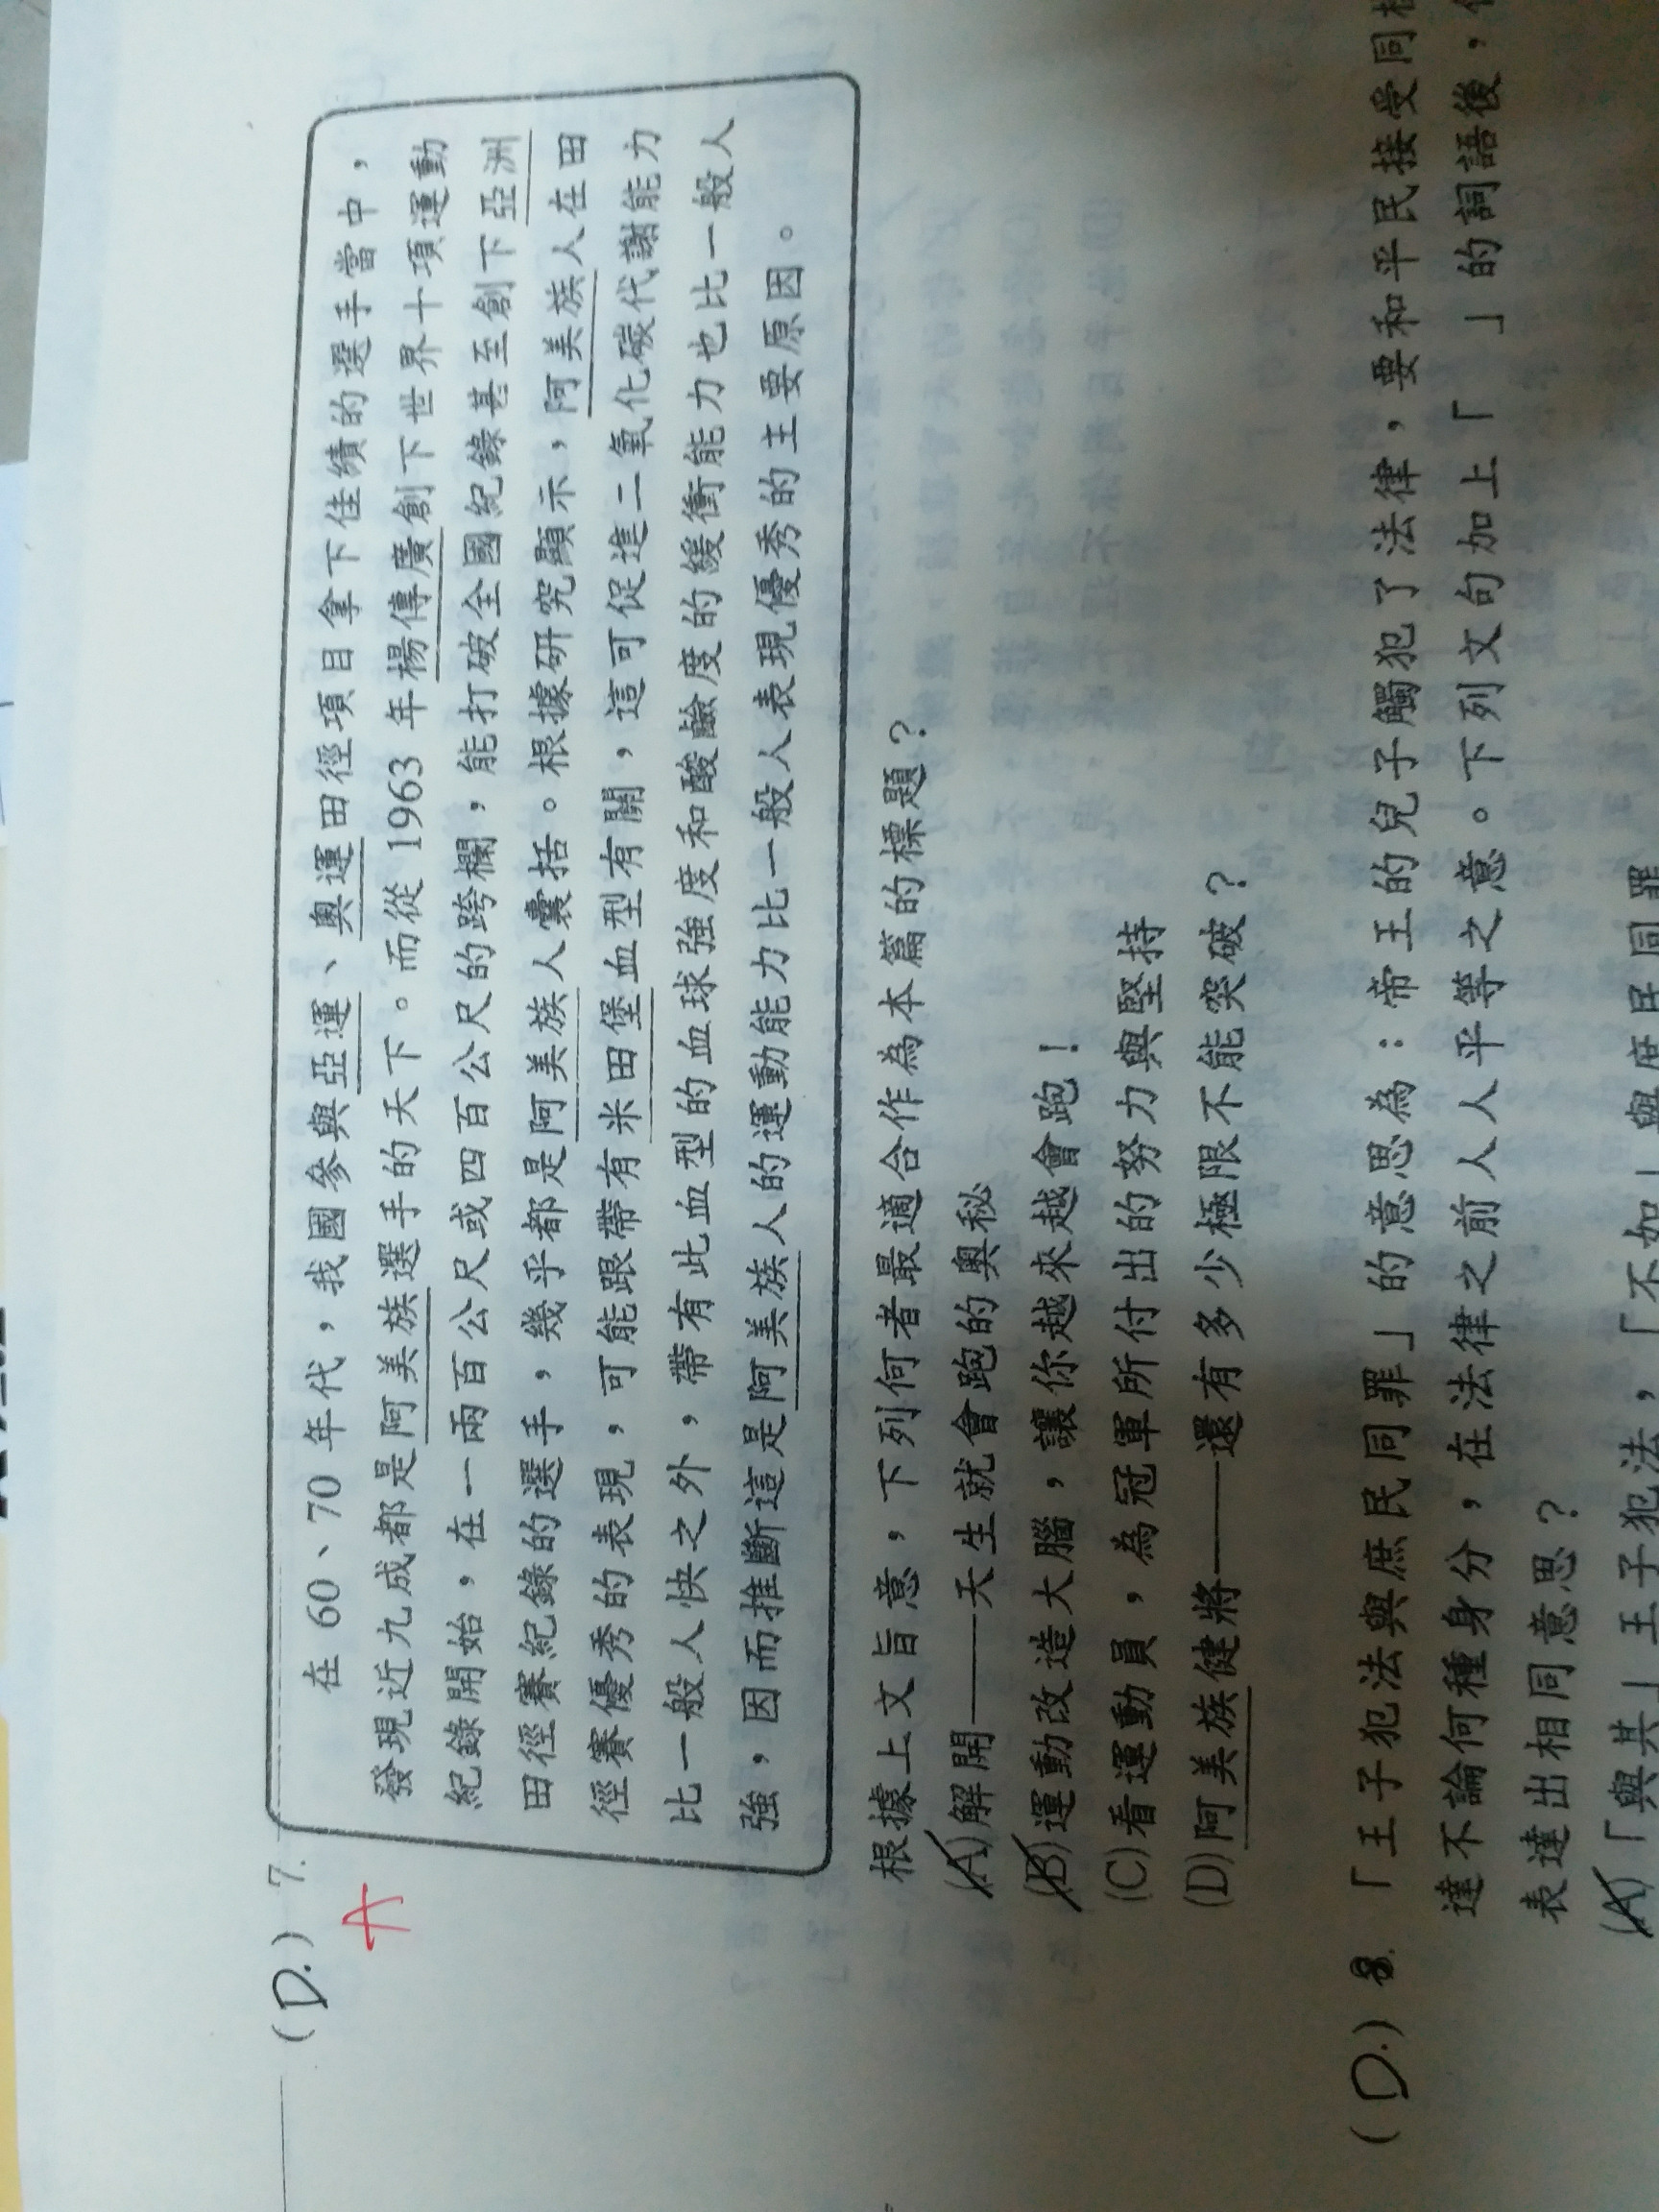 (D.) 7.
A
在 60、70 年代，我國參與亞運、奧運田徑項目拿下佳績的選手當中，
發現近九成都是阿美族選手的天下。而從 1963 年楊傳廣創下世界十項運動
紀錄開始，在一兩百公尺或四百公尺的跨欄，能打破全國紀錄甚至創下亞洲
田徑賽紀錄的選手，幾乎都是阿美族人囊括。根據研究顯示，阿美族人在田
徑賽優秀的表現，可能跟帶有米田堡血型有關，這可促進二氧化碳代謝能力
比一般人快之外，帶有此血型的血球強度和酸鹼度的緩衝能力也比一般人
強，因而推斷這是阿美族人的運動能力比一般人表現優秀的主要原因。
根據上文旨意，下列何者最適合作為本篇的標題？
(A)解開——天生就會跑的奧秘
(B)運動改造大腦，讓你越來越會跑！
(C)看運動員，為冠軍所付出的努力與堅持
(D)阿美族健將——還有多少極限不能突破？
(D.) 8. 「王子犯法與庶民同罪」的意思為：帝王的兒子觸犯了法律，要和平民接受同
達不論何種身分，在法律之前人人平等之意。下列文句加上「 」的詞語後，
表達出相同意思？
(A)「與其」王子犯法，「不如」與庶民同罪